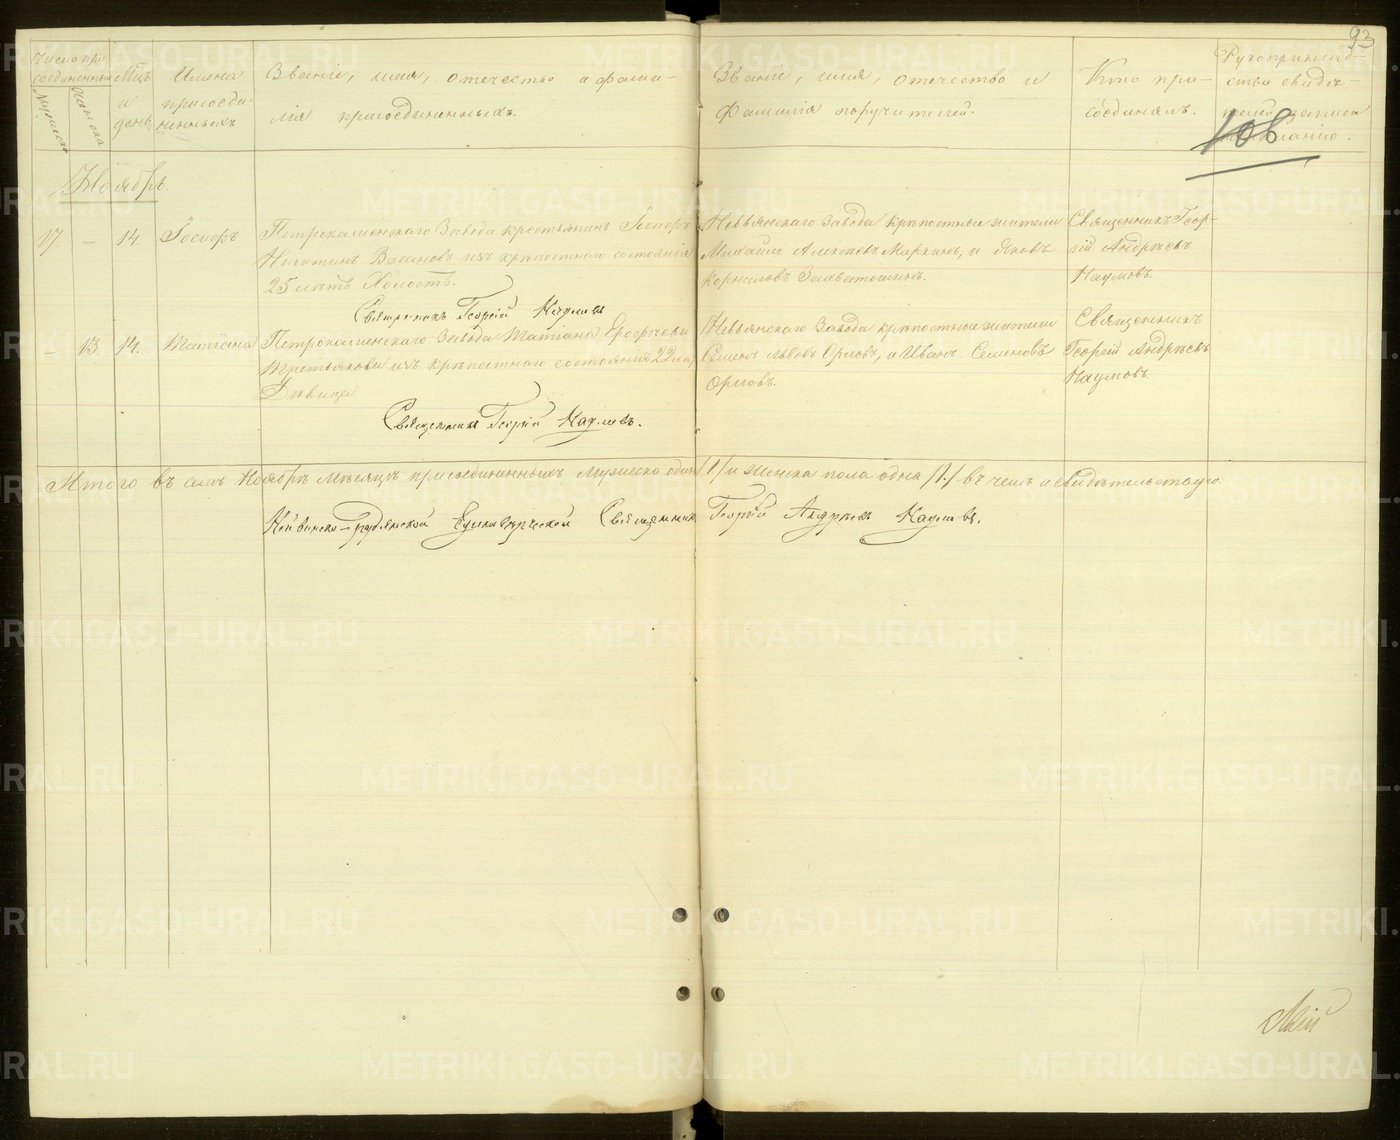 93
108
Число при-
соединенныхъ
Мужеска
Женска
Мѣсц.
и
день.
Имена
присоеди-
ненныхъ
Званіе, имя, отечество и фами-
лія присоединенныхъ.
Званіе, имя, отечество и
Фамилія поручителей.
Кто при-
соединялъ.
Рукоприклад-
ство свидѣ-
телей записи
по желанію.
Ноябрь.
17. — 14. Іосифъ
Петрокаменскаго Завода крестьянинъ Іосифъ
Никитинъ Васановъ изъ крѣпостнаго состоянія
25 лѣтъ Холостъ.
Священникъ Георгій Наумовъ
Невьянскаго Завода крѣпостные жители
Михайло Алексѣевъ Маркинъ, и Яковъ
Корниловъ
Священникъ Геор-
гій Андреевъ
Наумовъ.
— 13. 14. Татіана
Петрокаменскаго Завода Татіана Ерофѣева
Третьякова изъ крѣпостнаго состоянія 22 лѣ,
Дѣвица.
Священникъ Георгій Наумовъ.
Невьянскаго Завода крѣпостные жители
Семенъ Львовъ Орловъ, и Иванъ Семеновъ
Орловъ.
Священникъ
Георгій Андреевъ
Наумовъ.
Итого въ семъ Ноябрѣ мѣсяцѣ присоединенныхъ мужеска одинъ /1/ и женска пола одна /1./ въ чемъ и свидѣтельствую
Нейвинско-Рудянской Единовѣрческой Священникъ Георгій Андреевъ Наумовъ.
METRIKI.GASO-URAL.RU